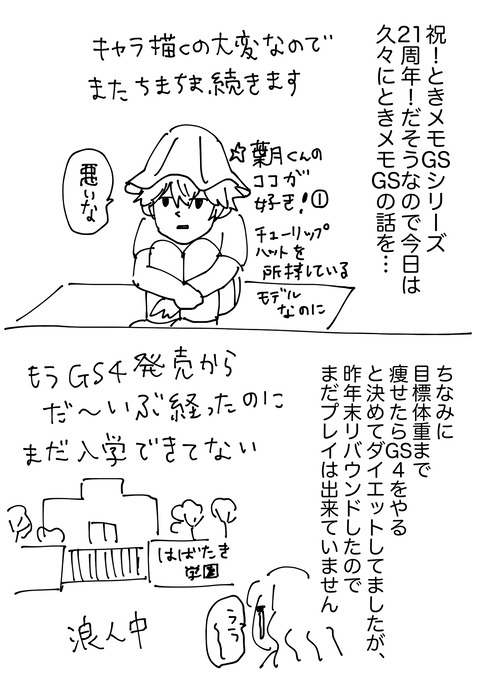 祝！ときメモGSシリーズ
21周年！だそうなので今日は
久々にときメモGSの話を…
キャラ描くの大変なので
またちまちま続きます
☆葉月くんの
ココが
好き！①
チューリップ
ハットを
所持している
モデル
なのに
悪いな
ちなみに
目標体重まで
痩せたらGS4をやる
と決めてダイエットしてましたが、
昨年末リバウンドしたので
まだプレイは出来ていません
もうGS4発売から
だ〜いぶ経ったのに
まだ入学できてない
はばたき
学園
浪人中
うう